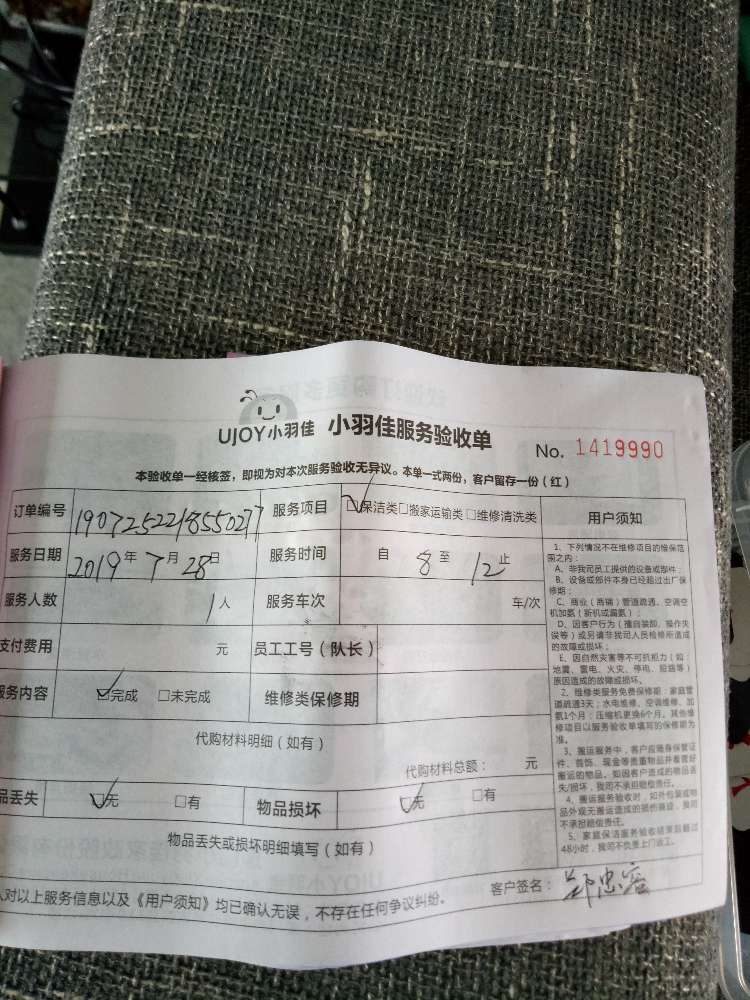 UJOY小羽佳 小羽佳服务验收单
No. 1419990
本验收单一经核签，即视为对本次服务验收无异议。本单一式两份，客户留存一份（红）
订单编号 190725221855027 服务项目 ☑保洁类□搬家运输类□维修清洗类
服务日期 2019年7月28日 服务时间 自 8 至 12 止
服务人数 1人 服务车次 车/次
支付费用 元 员工工号（队长）
服务内容 ☑完成 □未完成 维修类保修期
代购材料明细（如有）
代购材料总额： 元
品丢失 ☑无 □有 物品损坏 ☑无 □有
物品丢失或损坏明细填写（如有）
人对以上服务信息以及《用户须知》均已确认无误，不存在任何争议纠纷。
客户签名：
用户须知
1、下列情况不在维修项目的维保范
围之内：
A、非我司员工提供的设备或部件；
B、设备或部件本身已经超过出厂保
修期；
C、商业（商铺）管道疏通、空调空
机加氨（新机或漏氨）；
D、因客户行为（擅自装卸、操作失
误等）或另请非我司人员检修所造成
的故障或损坏；
E、因自然灾害等不可抗拒力（如：
地震、雷电、火灾、停电、短路等）
原因造成的故障或损坏。
2、维修类服务免费保修期：家庭管
道疏通3天；水电维修、空调维修、加
氨1个月；压缩机更换6个月。其他维
修项目以服务验收单填写的保修期为
准。
3、搬运服务中，客户应随身保管证
件、首饰、现金等贵重物品并看管好
搬运的物品。如因客户造成的物品丢
失/损坏，我司不承担赔偿责任。
4、搬运服务验收时，如外包装或物
品外观无搬运造成的损伤痕迹，我司
不承担赔偿责任。
5、家庭保洁服务验收结束后超过
48小时，我司不负责上门返工。